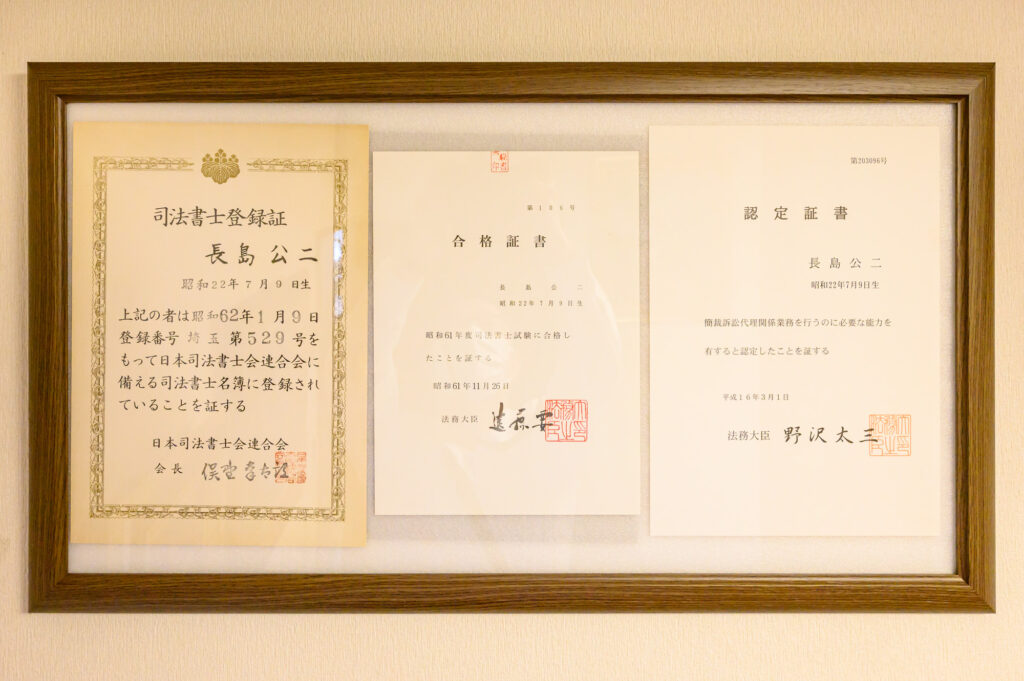 司法書士登録証
長島公二
昭和22年7月9日生
上記の者は昭和62年1月9日
登録番号 埼玉 第529号を
もって日本司法書士会連合会に
備える司法書士名簿に登録され
ていることを証する
日本司法書士会連合会
会長
第106号
合格証書
長島公二
昭和22年7月9日生
昭和61年度司法書士試験に合格し
たことを証する
昭和61年11月26日
法務大臣 遠藤要
第203096号
認定証書
長島公二
昭和22年7月9日生
簡裁訴訟代理関係業務を行うのに必要な能力を
有すると認定したことを証する
平成16年3月1日
法務大臣 野沢太三